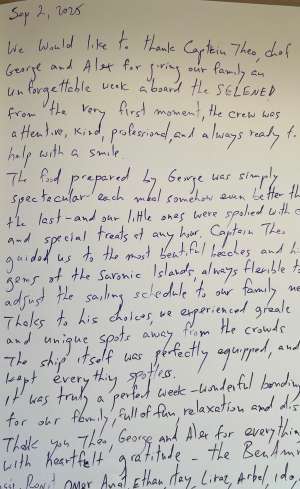 Sep 2, 2025
We would like to thank Captein Theo, chef
George and Alex for giving our family an
unforgettable week aboard the SELENED
From the very first moment, the crew was
attentive, kind, professional, and always ready t
help with a smile.
The food prepared by George was simply
spectacular each meal somehow even better th
the last - and our little ones were spoiled with c
and special treats at any hour. Captein Theo
guided us to the most beatiful beaches and h
gems of the Saronic Islands, always flexible to
adjust the sailing schedule to our family ne
Thanks to his choices, we experienced
and unique spots away from the crowds
The ship itself was perfectly equipped, and
kept everything spotless.
it was truly a perfect week - wonderful bonding
for our family, full of fun relaxation and dis
Thank you Theo, George and Alex for everythin
with heartfelt gratitude - the BenAm
Omer Anat Ethan, Itay, Liraz, Arbel, Ido,